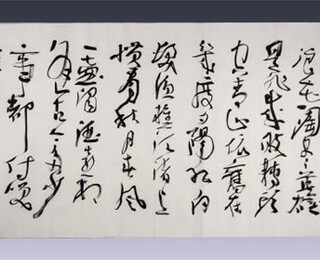 浪花淘尽英雄
是非成败转头
空青山依旧在
几度夕阳红白
发渔樵江渚上
惯看秋月春风
一壶浊酒喜相
逢古今多少
事都付笑